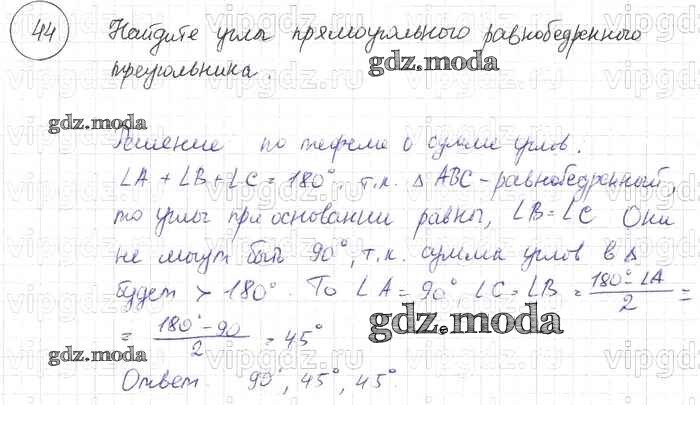 44 Найдите углы прямоугольного равнобедренного
треугольника.
gdz.moda
gdz.moda
Решение по теореме о сумме углов.
∠A + ∠B + ∠C = 180°, т.к. Δ ABC - равнобедренный,
то углы при основании равны, ∠B = ∠C Они
не могут быть 90°, т.к. сумма углов в Δ
будет > 180° То ∠A = 90°, ∠C = ∠B = (180° - ∠A)/2 =
= (180° - 90)/2 = 45°
gdz.moda
gdz.moda
Ответ 90°, 45°, 45°.